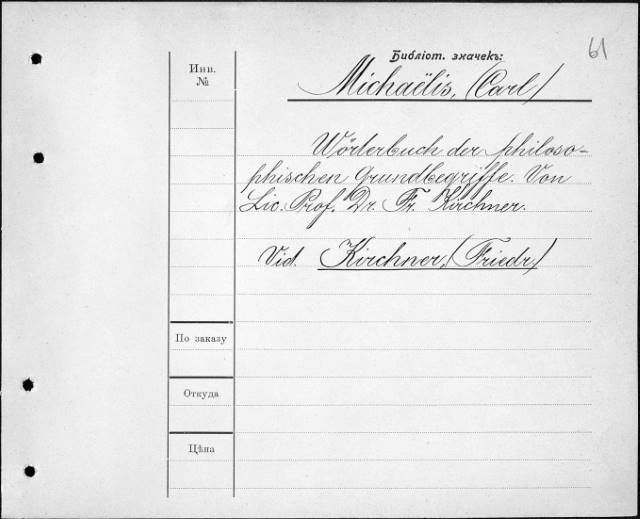 61
Библіот. значекъ:
Инв.
№
Michaëlis, (Carl)
Wörterbuch der philoso-
phischen Grundbegriffe. Von
Lic. Prof. Dr. Fr. Kirchner.
Vid. Kirchner, (Friedr)
По заказу
Откуда
Цѣна